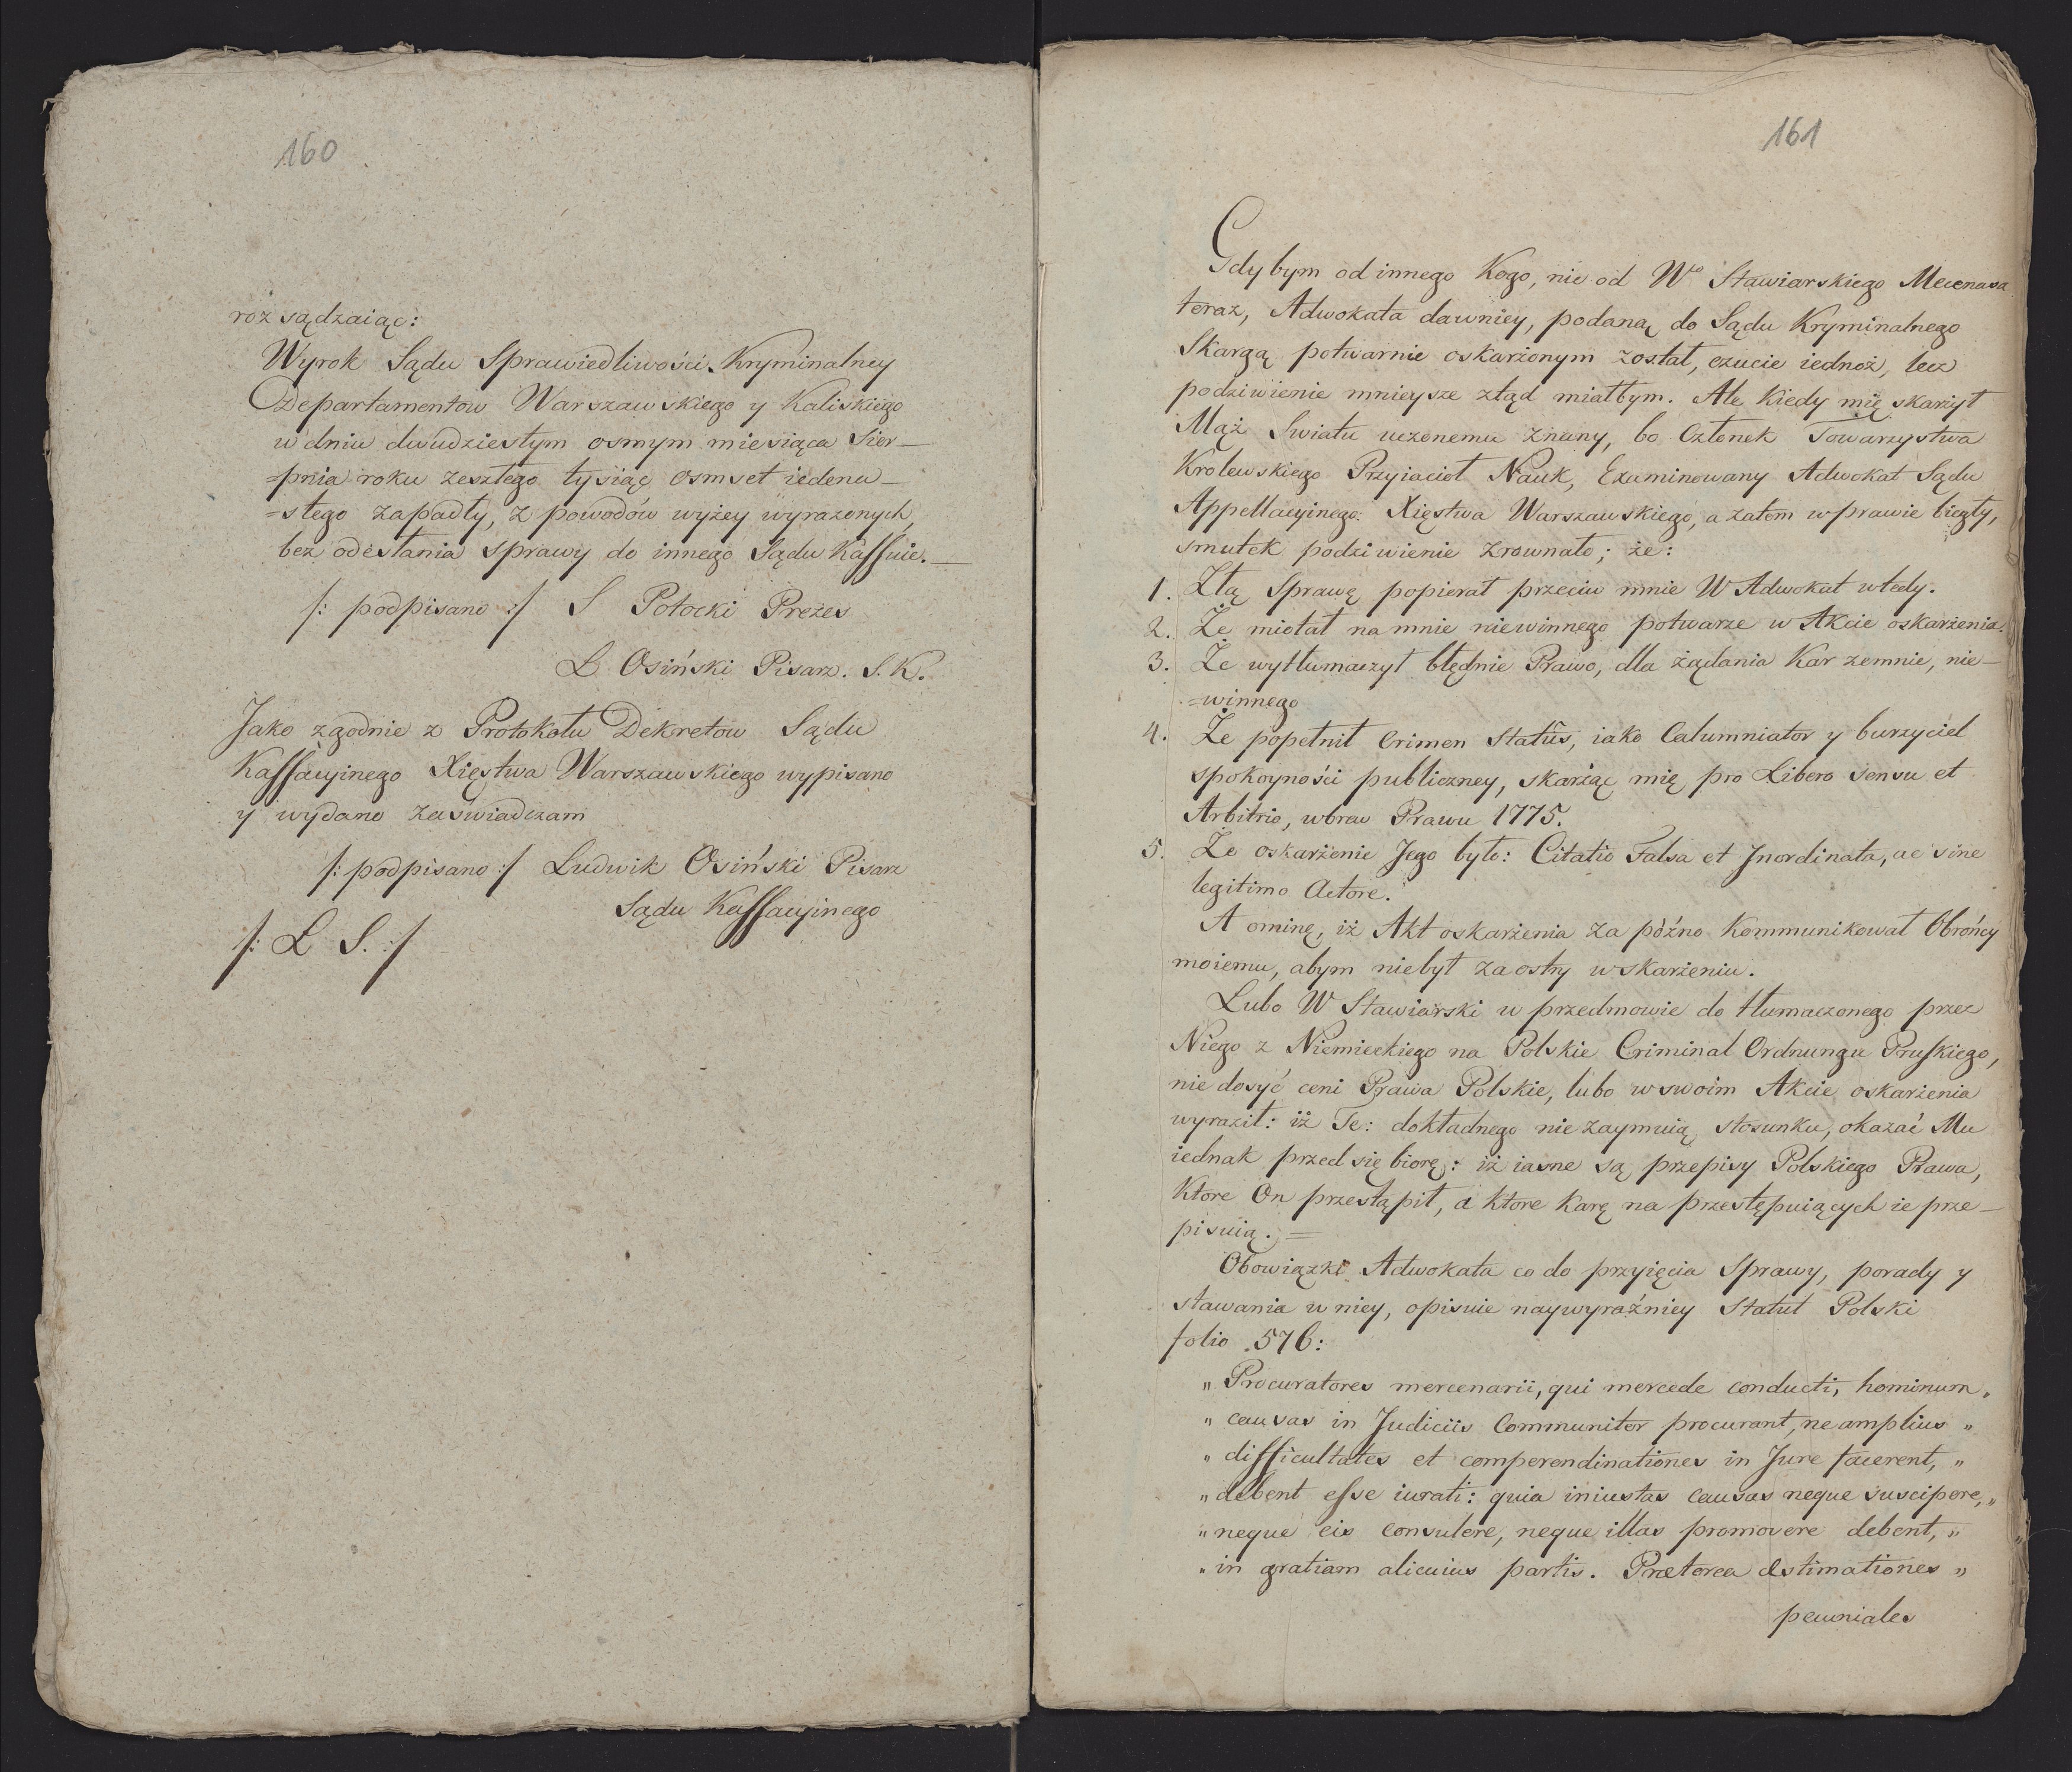 160
rozsądzaiąc:
Wyrok Sądu Sprawiedliwości Kryminalney
Departamentow Warszawskiego y Kaliskiego
w dniu dwudziestym osmym miesiąca Sier-
=pnia roku zeszłego tysiąc osmset iedena-
=stego zapadły, z powodów wyżey wyrazonych,
bez odesłania sprawy do innego Sądu Kassuie.
/: podpisano :/ S Potocki Prezes
L Osiński Pisarz. S. K.
Jako zgodnie z Protokołu Dekretow Sądu
Kassacyinego Xięstwa Warszawskiego wypisano
y wydano zaswiadczam
/: podpisano :/ Ludwik Osiński Pisarz
Sądu Kassacyinego
/: L S. :/
161
Gdybym od innego Kogo, nie od Wgo Stawiarskiego Mecenasa
teraz, Adwokata dawniey, podaną do Sądu Kryminalnego
Skargą potwarnie oskarżonym został, czucie iednoż, lecz
podziwienie mnieysze ztąd miałbym. Ale kiedy mię skarżył
Mąż Swiatu uczonemu znany, bo Członek Towarzystwa
Krolewskiego Przyiacioł Nauk, Examinowany Adwokat Sądu
Appellacyinego Xięstwa Warszawskiego, a zatem w prawie biegły,
smutek podziwienie zrownało; że:
1. Złą Sprawę popierał przeciw mnie W Adwokat wtedy.
2. Że miotał na mnie niewinnego potwarze w Akcie oskarżenia.
3. Że wytłumaczył błędnie Prawo, dla żądania Kar zemnie, nie-
=winnego
4. Że popełnił Crimen Statûs, iako Calumniator y burzyciel
spokoyności publiczney, skarżąc mię pro Libero sensu et
Arbitrio, wbrew Prawu 1775.
5. Że oskarżenie Jego było: Citatio Falsa et Jnordinata, ac sine
legitimo Actore.
A ominę, iż Akt oskarżenia za późno Kommunikował Obrońcy
moiemu, abym niebył za ostry w skarżeniu.
Lubo W Stawiarski w przedmowie do tłumaczonego przez
Niego z Niemieckiego na Polskie Criminal Ordnungu Pruskiego,
nie dosyć ceni Prawa Polskie, lubo w swoim Akcie oskarżenia
wyraził: iż Te: dokładnego nie zaymuią stosunku, okazać Mu
iednak przedsiębiorę: iż iasne są przepisy Polskiego Prawa,
Ktore On przestąpił, a ktore karę na przestępuiących ie prze-
pisuią. =
Obowiązki Adwokata co do przyięcia Sprawy, porady y
stawania w niey, opisuie naywyraźniey Statut Polski
folio 576:
„ Procuratores mercenarii, qui mercede conducti, hominum „
„ causas in Judiciis Communiter procurant, ne amplius „
„ difficultates et comperendinationes in Jure facerent, „
„ debent esse iurati: quia iniustas causas neque suscipere, „
„ neque eis consulere, neque illas promovere debent, „
„ in gratiam alicuius partis. Prætorea æstimationes „
pecuniales